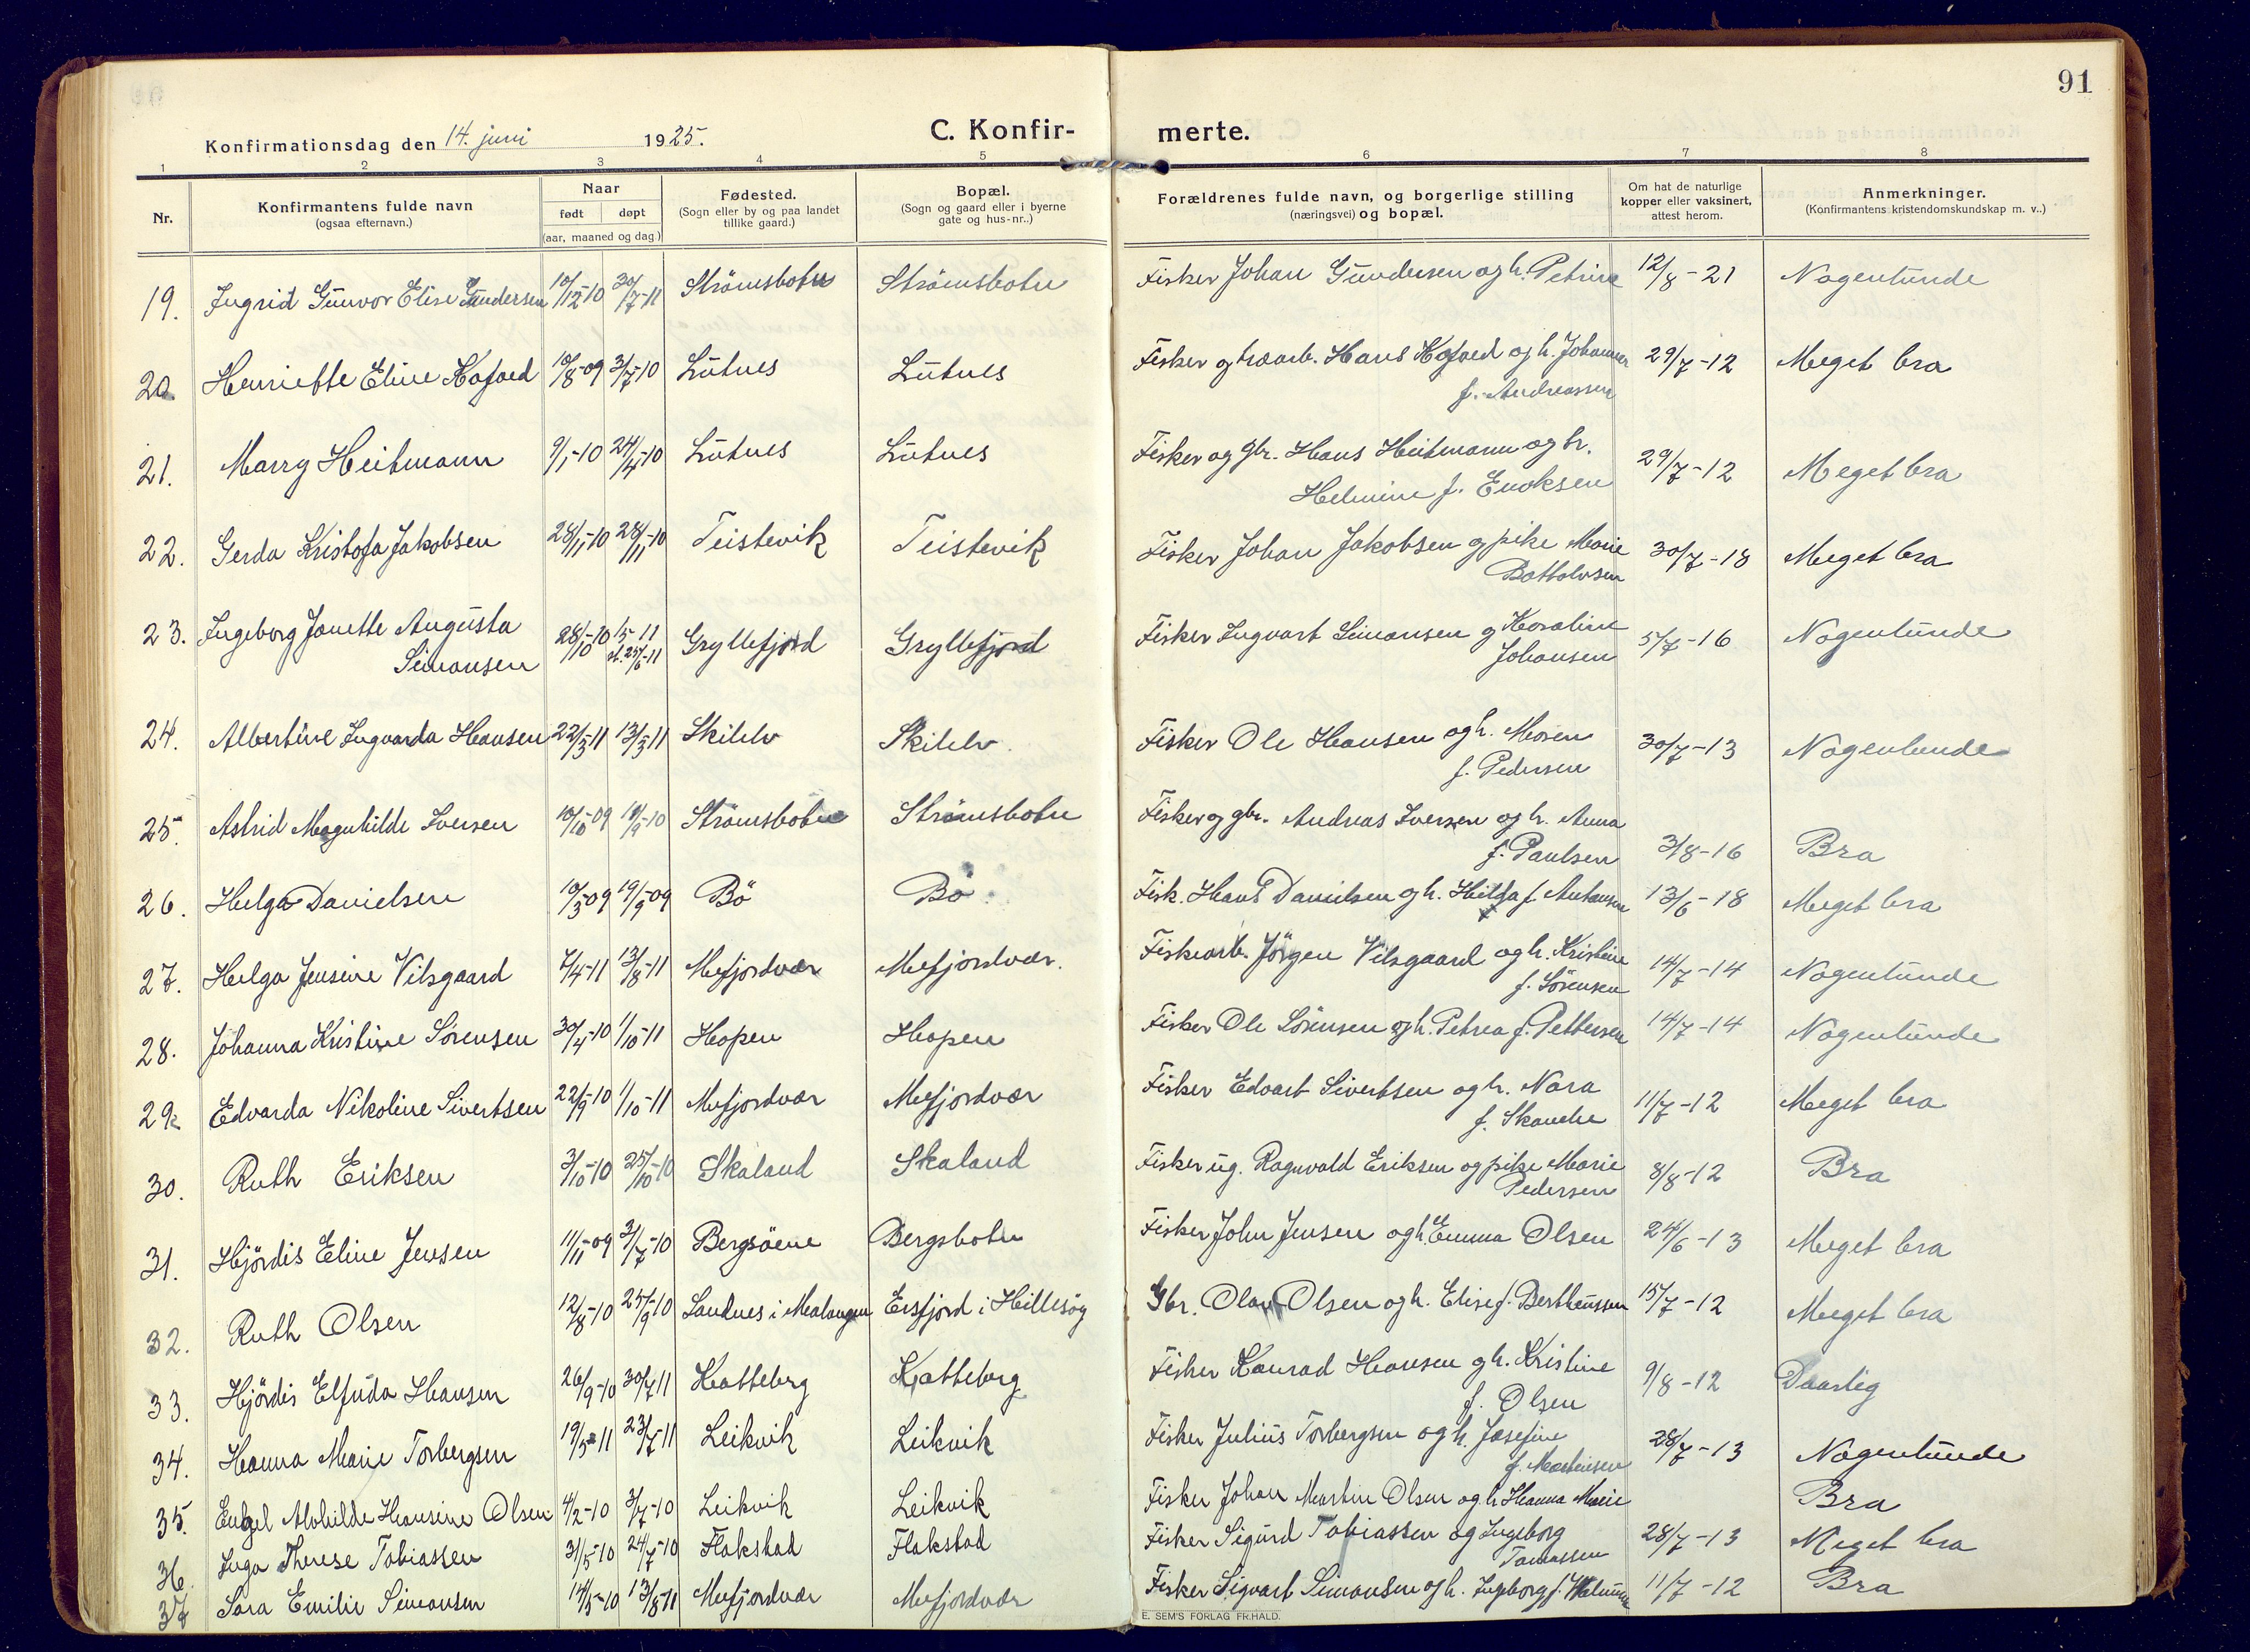 91
Konfirmationsdag den 14. juni 1925.
C. Konfir-
merte.
1 2 3 4 5 6 7 8
Nr.
Konfirmantens fulde navn
(ogsaa efternavn.)
Naar
født døpt
(aar, maaned og dag.)
Fødested.
(Sogn eller by og paa landet
tillike gaard.)
Bopæl.
(Sogn og gaard eller i byerne
gate og hus-nr..)
Forældrenes fulde navn, og borgerlige stilling
(næringsvei) og bopæl.
Om hat de naturlige
kopper eller vaksinert,
attest herom.
Anmerkninger.
(Konfirmantens kristendomskundskap m. v..)
19. Ingrid Gunvor Elise Gundersen 10/12-10 30/7-11 Strömsbotn Strömsbotn Fisker Johan Gundersen og h. Petrine 12/8-21 Nogenlunde
20. Henriette Eline Kofoed 10/8-09 3/7-10 Lutnes Lutnes Fisker og træarb. Hans Kofoed og h. Johanna 29/7-12 Meget bra
f. Andreassen
21. Marry Heitmann 9/1-10 24/4-10 Lutnes Lutnes Fisker og gbr. Hans Heitmann og h. 29/7-12 Meget bra
Helmine f. Enoksen
22. Gerda Kristofa Jakobsen 28/1-10 28/11-10 Teistevik Teistevik Fisker Johan Jakobsen og pike Marie 30/7-18 Meget bra
Bottolvsen
23. Ingeborg Janette Augusta 28/10-10 Gryllefjord Gryllefjord Fisker Ingvart Simonsen og Koraline 5/7-16 Nogenlunde
Simonsen Johansen
24. Albertine Ingvarda Hansen 22/3-11 13/5-11 Skilelv Skilelv. Fisker Ole Hansen og h. Maren 30/7-13 Nogenlunde
f. Pedersen
25. Astrid Magnhilde Iversen 10/10-09 18/9-10 Strömsbotn Strömsbotn Fisker og gbr. Andreas Iversen og h. Anna
f. Paulsen 3/8-16 Bra
26. Helga Danielsen 10/3-09 19/9-09 Bö Bö. Fisk. Hans Danielsen og h. Hilda f. Antonsen 13/6-18 Meget bra
27. Helga Jensine Vilsgaard 7/4-11 13/8-11 Mefjordvær Mefjordvær. Fiskearb. Jörgen Vilsgaard og h. Kristine 14/7-14 Nogenlunde
f. Sörensen
28. Johanna Kristine Sörensen 30/4-10 1/10-11 Hopen Hopen Fisker Ole Sörensen og h. Petrea f. Pettersen 14/7-14 Nogenlunde
29. Edvarda Nikoline Sivertsen 22/9-10 1/10-11 Mefjordvær Mefjordvær Fisker Edvart Sivertsen og h. Nora 11/7-12 Meget bra
f. Skanche
30. Ruth Eriksen 3/10-10 25/10-10 Skaland Skaland Fisker ug. Ragnvald Eriksen og pike Marie 8/8-12 Bra
Pedersen
31. Hjördis Eline Jensen 11/11-09 3/7-10 Bergsöene Bergsbotn Fisker John Jensen og h. Emma Olsen 24/6-13 Meget bra
32. Ruth Olsen 12/8-10 25/9-10 Sandnes i Malangen Ersfjord i Hillesöy Gbr. Olav Olsen og h. Elise f. Bertheussen 15/7-12 Meget bra
33. Hjördis Elfrida Hansen 26/9-10 30/7-11 Katteberg Katteberg Fisker Konrad Hansen og h. Kristine 9/8-12 Daarlig
f. Olsen
34. Hanna Marie Torbergsen 19/5-11 23/7-11 Leikvik Leikvik Fisker Julius Torbergsen og h. Josefine 28/7-13 Nogenlunde
f. Martinsen
35. Engel Alvhilde Hansine Olsen 4/2-10 3/7-10 Leikvik Leikvik Fisker Johan Martin Olsen og h. Hanna Marie Bra
36. Inga Therese Tobiassen 31/5-10 24/7-10 Flakstad Flakstad Fisker Sigurd Tobiassen og Ingeborg 28/7-13 Meget bra
Tomassen
37 Sara Emilie Simonsen 14/5-10 13/8-11 Mefjordvær Mefjordvær Fisker Sigvart Simonsen og h. Ingeborg f. 11/7-12 Bra
E. SEM'S FORLAG FR.HALD.